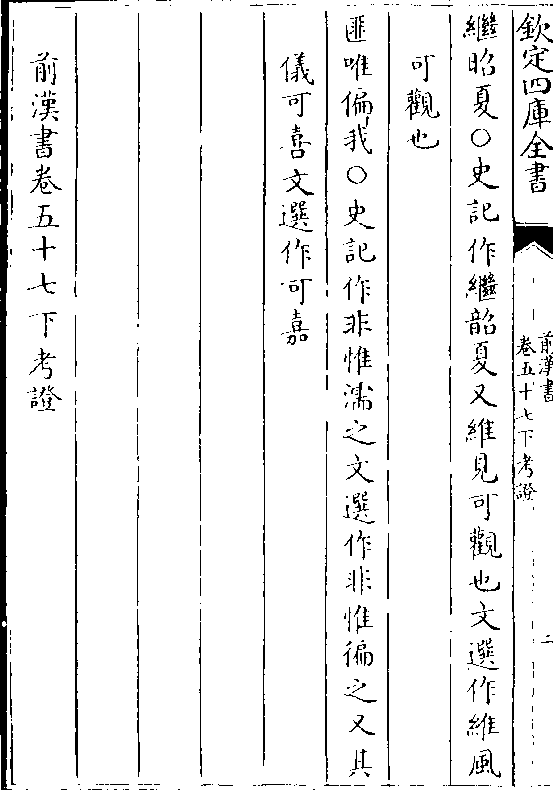 欽定四庫全書
前漢書
卷五十七下考證
二
繼昭夏○史記作繼韶夏又維見可觀也文選作維風
可觀也
匪唯偏我○史記作非惟濡之文選作非惟徧之又其
儀可喜文選作可嘉
前漢書卷五十七下考證